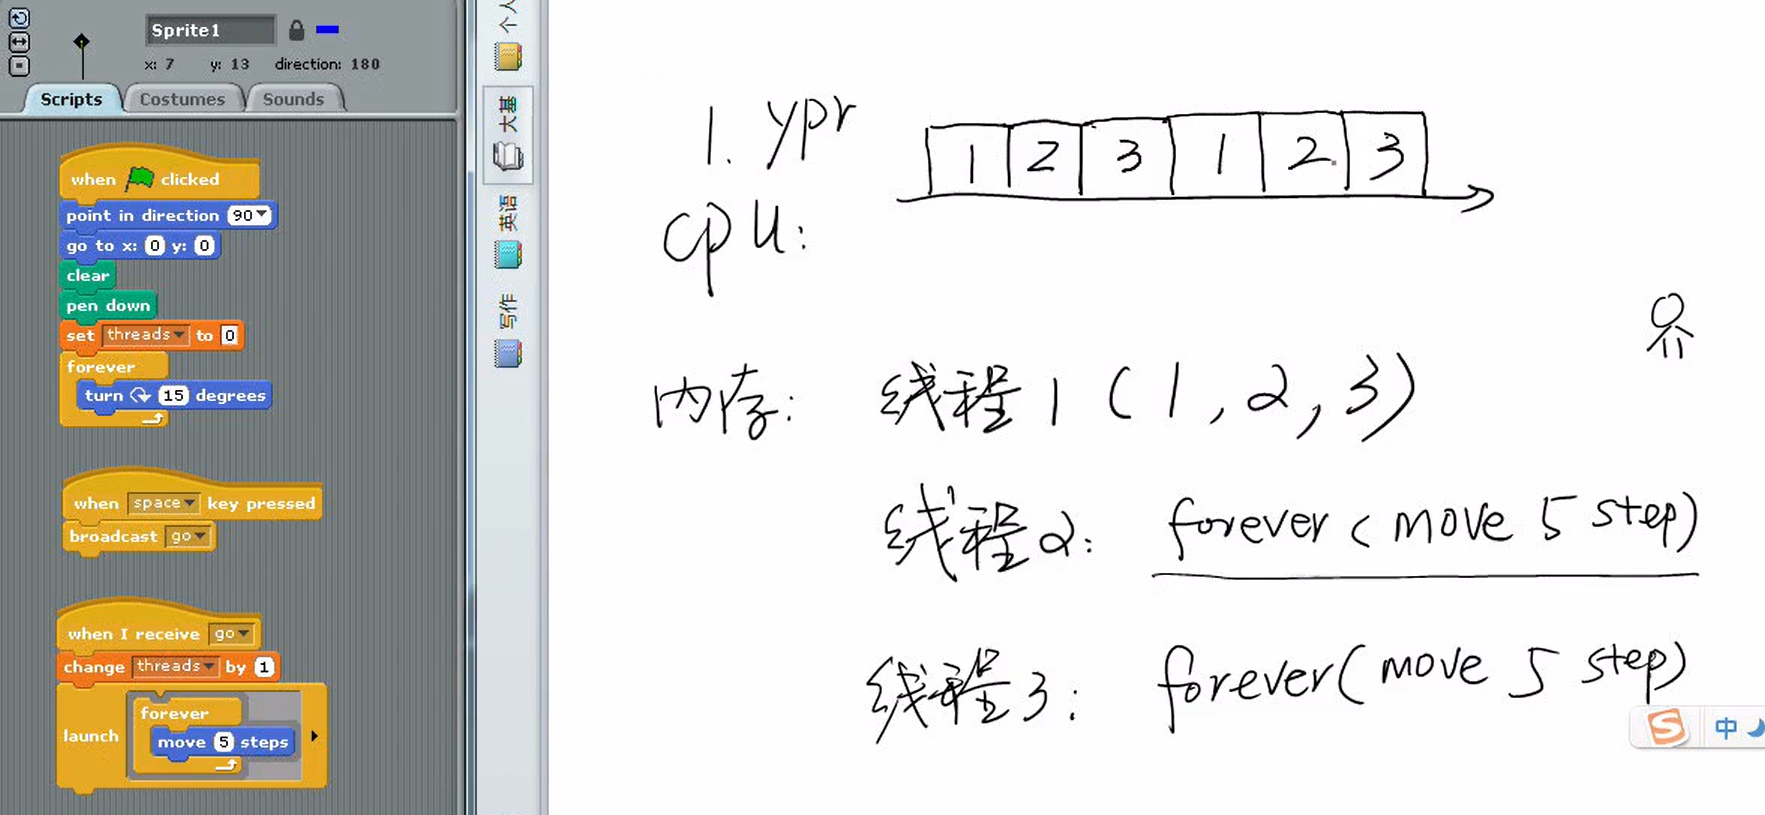 Sprite1
x: 7 y: 13 direction: 180
Scripts Costumes Sounds
when clicked
point in direction 90
go to x: 0 y: 0
clear
pen down
set threads to 0
forever
turn 15 degrees
when space key pressed
broadcast go
when I receive go
change threads by 1
launch
forever
move 5 steps
个人
大事
英语
写作
1. ypr
1 2 3 1 2 3
cpu:
内存: 线程1 (1, 2, 3)
线程2: forever (move 5 step)
线程3: forever (move 5 step)
中